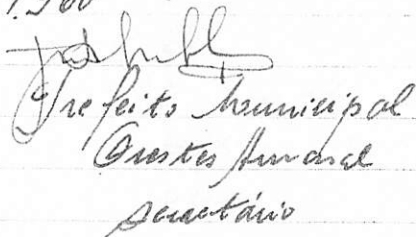 1.960
Prefeito Municipal
Orestes Amaral
secretário